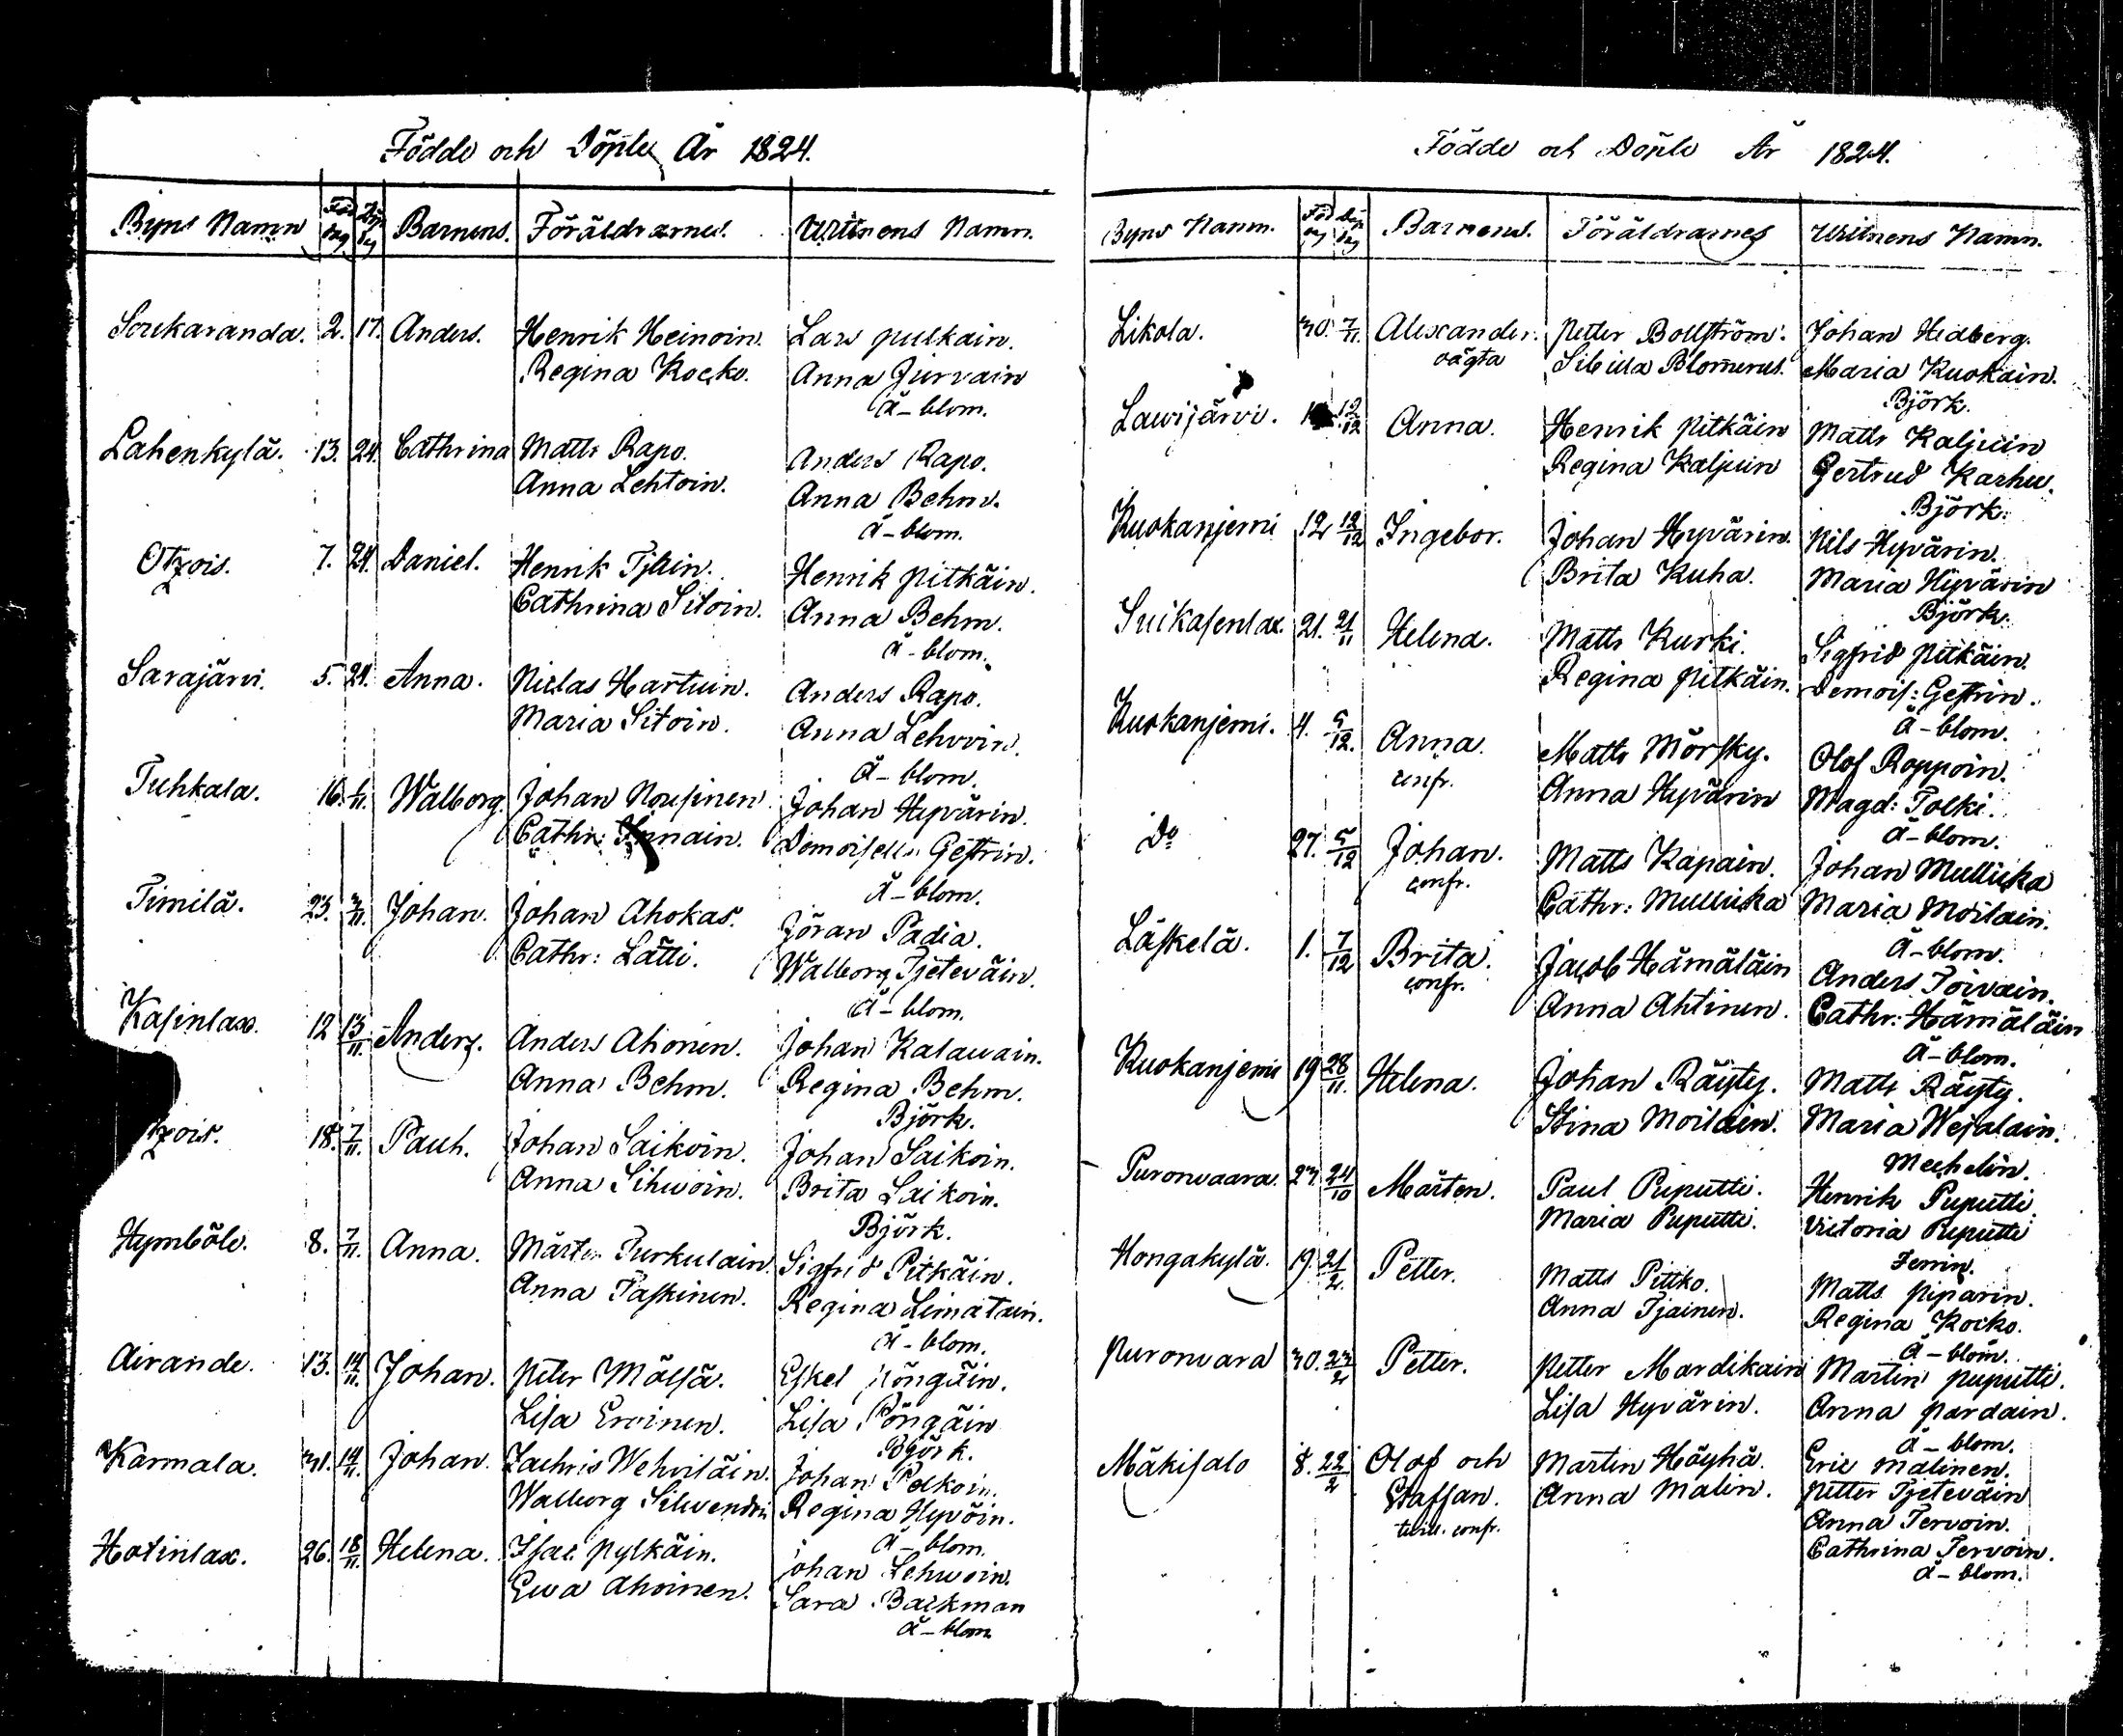 Födde och Döpte År 1824.
Byns Namn Föd dag Döp dag Barnens. Föräldrarnes. Witnens Namn.
Sorikaranda. 2. 17. Anders. Henrik Heinoin. Lars pulkain.
Regina Kocko. Anna Jurvain
Ä-blom.
Lahenkylä. 13. 24. Cathrina Matts Rapo. Anders Rapo.
Anna Lehtoin. Anna Behm.
Ä-blom.
Otzois. 7. 24. Daniel. Henrik Henrik pitkäin.
Cathrina Sitoin. Anna Behm.
Ä-blom.
Sarajärvi. 5. 24. Anna. Niclas Hartuin. Anders Rapo.
Maria Sitoin. Anna Lehvoin.
Ä-blom.
Tuhkala. 16. 6/11. Walborg. Johan Nousinen. Johan Hyvärin.
Cathr: Demoiselle Gestrin.
Ä-blom.
Timilä. 23. 3/11. Johan. Johan Ahokas. Jöran Padia.
Cathr: Lätti. Walborg Tjeteväin.
Ä-blom.
Kasinlax. 12 13/11. Anders. Anders Ahonen. Johan Kalawain.
Anna Behm. Regina Behm.
Björk.
zois. 18. 7/11. Pauh. Johan Saikoin. Johan Saikoin.
Anna Sihwoin. Brita Laikoin.
Björk.
Hymböle. 8. 7/11. Anna. Mårten Turkulain. Sigfrid Pitkäin.
Anna Paskinen. Regina Limatain.
Ä-blom.
Airande. 13. 14/11. Johan. Peter Mälsä. Eskel Pöngäin.
Lisa Eroinen. Lisa Pöngäin
Björk.
Karmala. 31. 14/11. Johan. Zachris Wehviläin. Johan Pelkoin.
Walborg Silwendoin Regina Hyvöin.
Ä-blom.
Hotinlax. 26. 18/11. Helena. Isac pylkäin. Johan Lehwoin.
Ewa Ahoinen. Sara Backman
Ä-blom
Födde och Döpte År 1824.
Byns Namn. Föd dag Döp dag Barnens. Föräldrarnes Witnens Namn.
Likola. 30. 7/11. Alexander. Petter Bollström. Johan Hedberg.
oägta Sibilla Blomerus. Maria Kuokain.
Björk.
Lavijärvi. 12/12 Anna. Henrik pitkäin Matts Kaljuin
Regina Kaljuin Gertrud Karhu.
Björk.
Kuokanjemi 12 12/12 Ingebor. Johan Hyvärin. Nils Hyvärin.
Brita Kuha. Maria Hyvärin
Björk.
Suikasenlax. 21. 21/11 Helena. Matts Kurki. Sigfrid pitkäin.
Regina pitkäin. Demois: Gestrin.
Ä-blom.
Kuokanjemi. 4. 5/12. Anna. Matts Mörsky. Olof Roppoin.
confr. Anna Hyvärin Magd: Tolki.
Ä-blom.
Do 27. 5/12 Johan. Matts Kapain. Johan Mullicka
confr. Cathr: Mullicka Maria Moilain.
Ä-blom.
Läskelä. 1. 7/12 Brita. Jacob Hämäläin Anders Toivain.
confr. Anna Ahtinen. Cathr: Hämäläin
Ä-blom.
Kuokanjemi 19 28/11. Helena. Johan Räyty. Matts Räyty.
Stina Moilain. Maria Wesalain.
Mechelin.
Puronvaara. 23. 24/10 Mårten. Paul Puputti. Henrik Puputti.
Maria Puputti. Victoria Puputti
Femin.
Hongakylä. 19. 21/2. Petter. Matts Pitko. Matts piparin.
Anna Tjainen. Regina Kocko.
Ä-blom.
Puronvara 30. 23/2 Petter. Petter Mardikain Martin puputti.
Lisa Hyvärin. Anna pardain.
Ä-blom.
Mäkisalo 8. 22/2 Olof och Martin Höyhä. Eric Malinen.
Staffan. Anna Malin. Petter Tjeteväin
tvill. confr. Anna Tervoin.
Cathrina Tervoin.
Ä-blom.